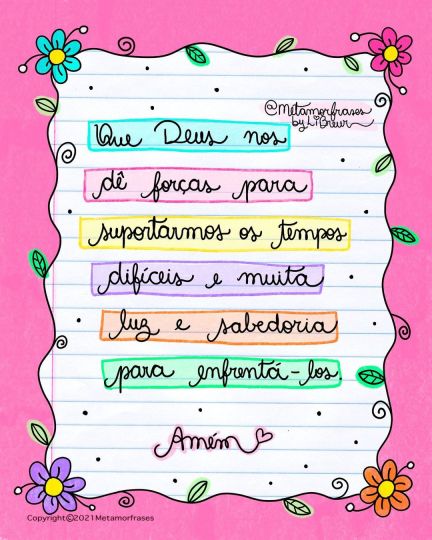 @Metamorfrases
by Li Breur
Que Deus nos
dê forças para
suportarmos os tempos
difíceis e muita
luz e sabedoria
para enfrentá-los.
Amém
Copyright©2021 Metamorfrases